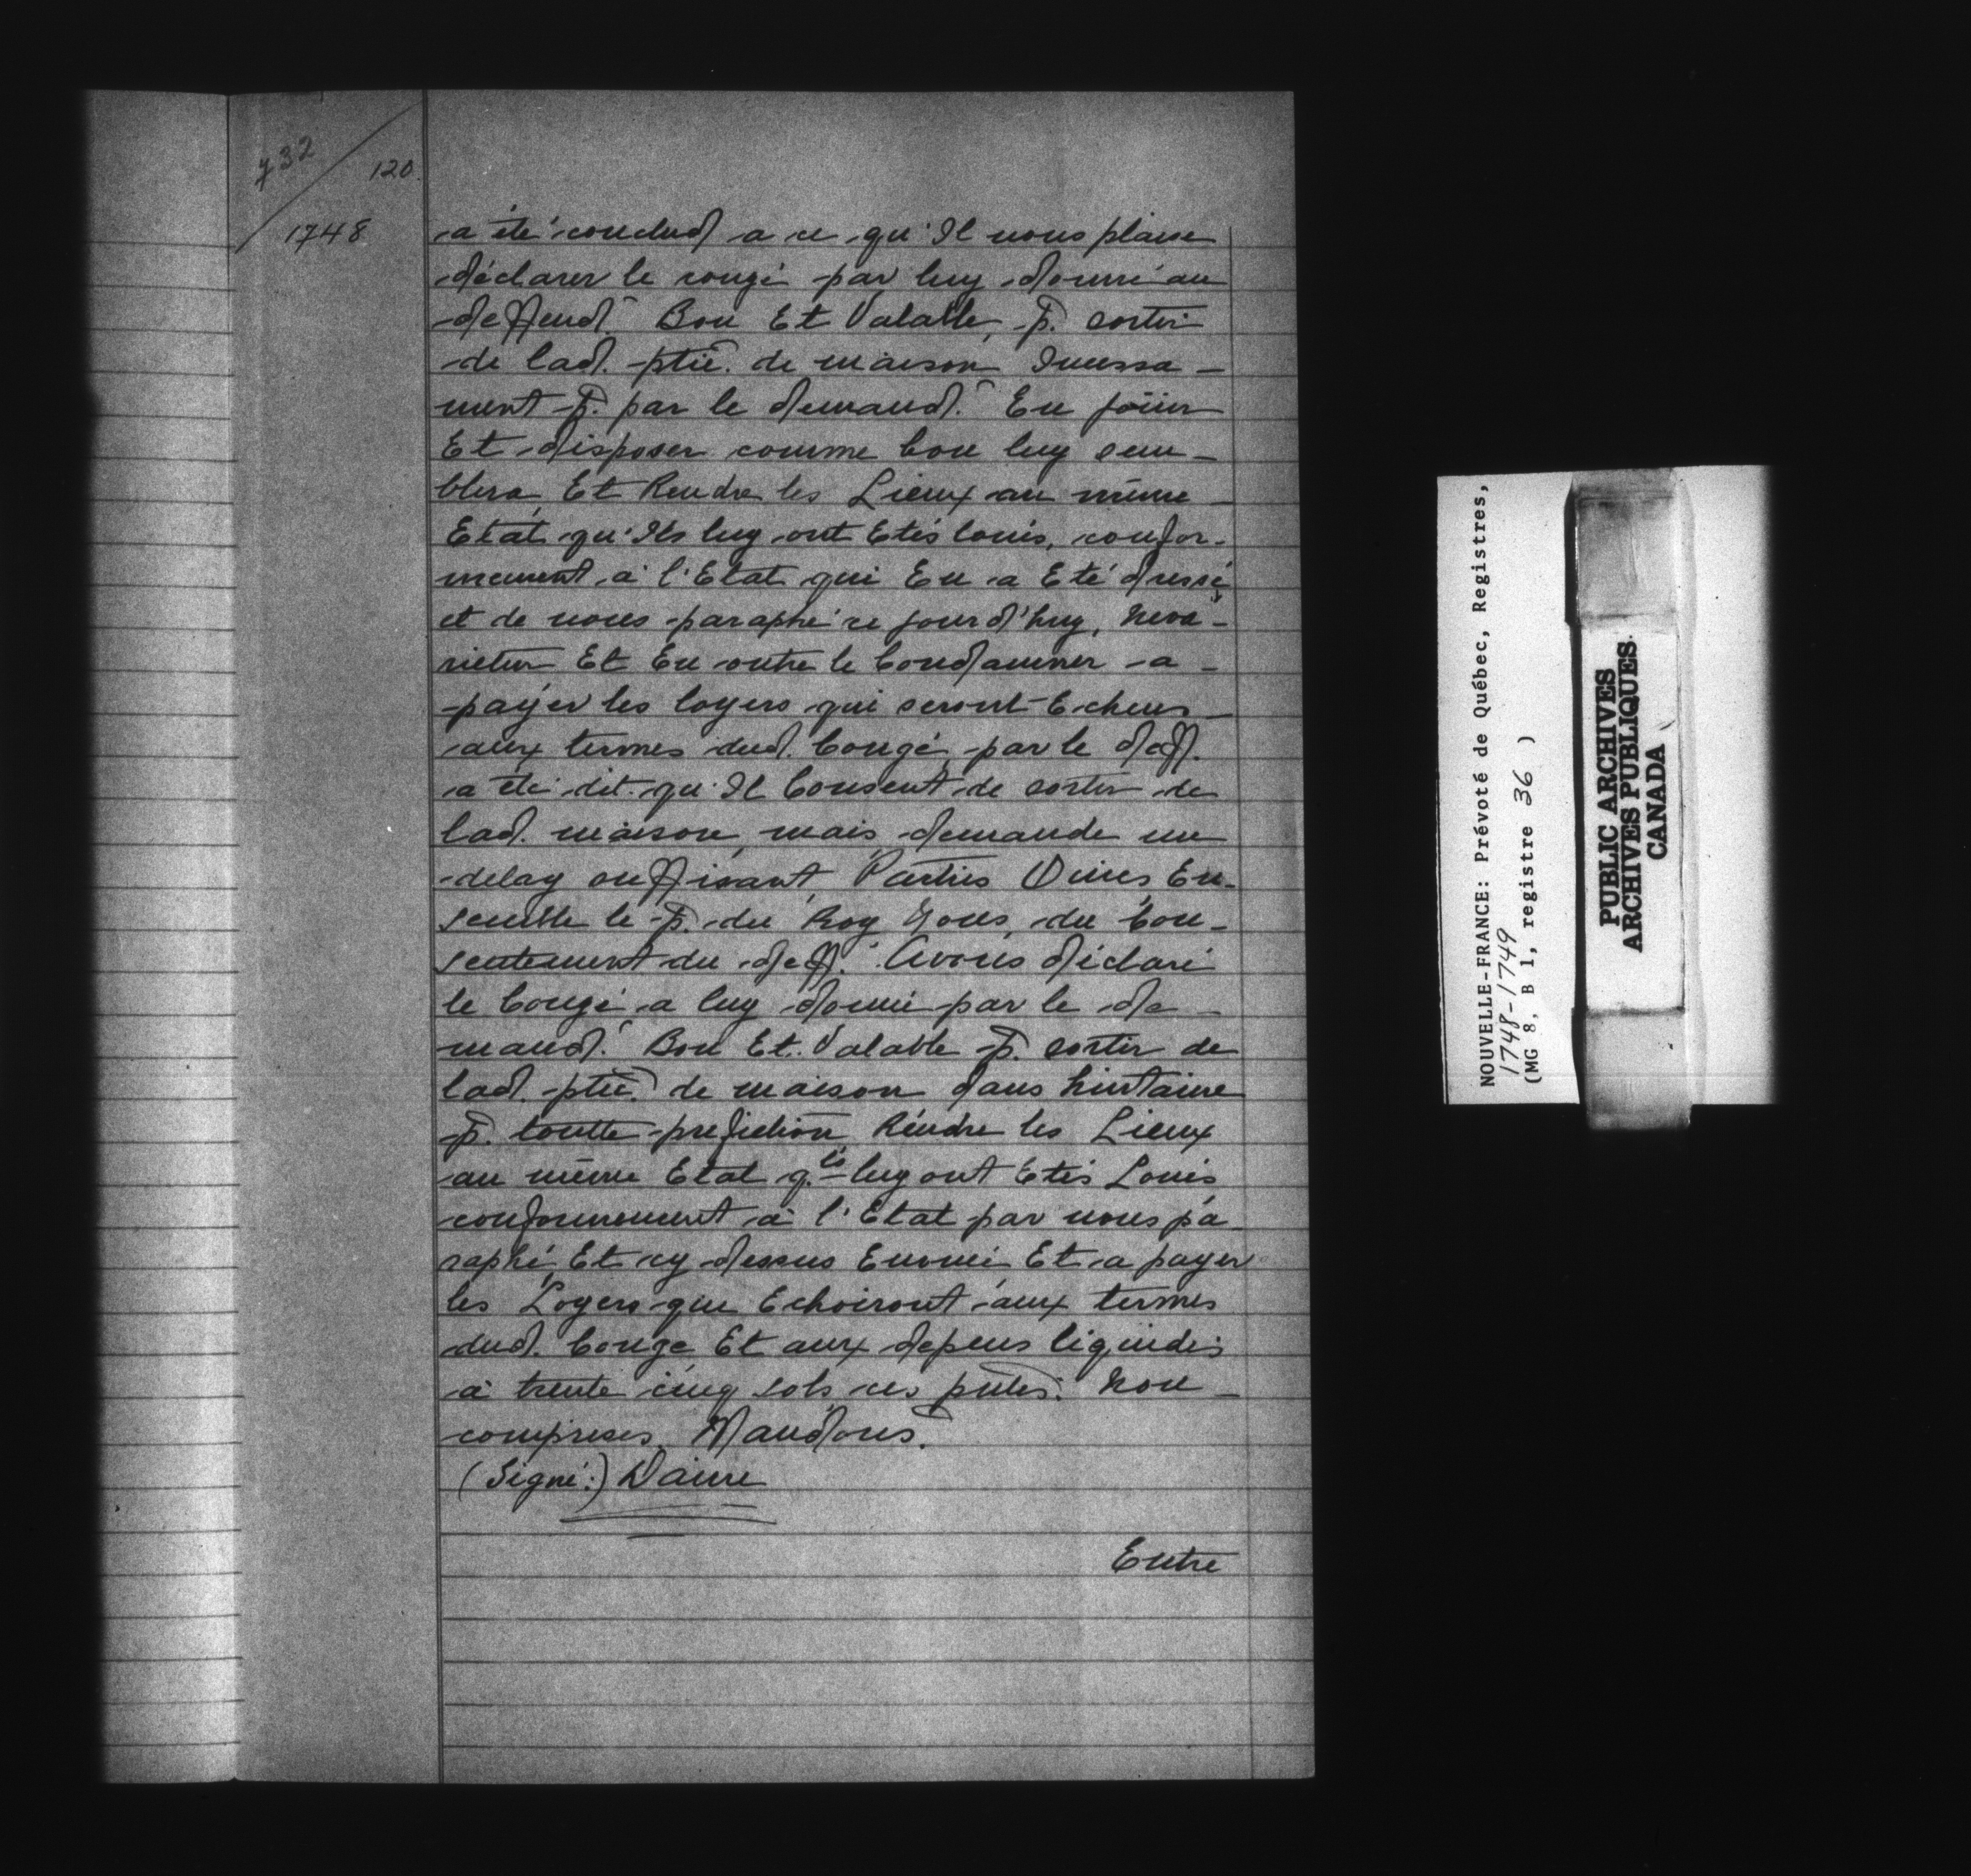 732
120.
1748
a été conclud a ce qu'Il nous plaise
déclarer le congé par luy donné au
deffend.r Bon Et Valable, p.r sortir
de lad. ptie. de maison Incessa-
ment p.r par le demand.r En joüir
Et disposer comme bon luy sem-
blera, Et Rendre les Lieux au même
Etat qu'Ils luy ont Etés loués, confor-
mement à l'Etat qui En a Eté dressé
et de nous paraphé ce jourd'huy, Neva-
rietur Et En outre le Condamner a
payer les loyers qui seront Echeus
aux termes dud. Congé, par le deff.
a été dit qu'Il Consent de sortir de
lad. maison, mais demande un
delay suffisant, Parties Ouies En-
semble le p.r du Roy Nous, du Con-
sentement du deff.r Avons déclaré
le Congé a luy donné par le de-
mand.r Bon Et Valable p.r sortir de
lad. ptie. de maison dans huitaine
p.r toutte prefiction, Réndre les Lieux
au même Etat q.ls luy ont Etés Loués
conformement à l'Etat par nous pa-
raphé, Et cy dessus Enoncé Et a payer
les Loyers que Echoiront aux termes
dud. Congé Et aux depens liquidés
à trente cinq sols ces pntes. Non
comprises, Mandons.
(Signé:) Daine
Entre
NOUVELLE-FRANCE: Prévoté de Québec, Registres,
1748-1749
(MG 8, B 1, registre 36 )
PUBLIC ARCHIVES
ARCHIVES PUBLIQUES
CANADA